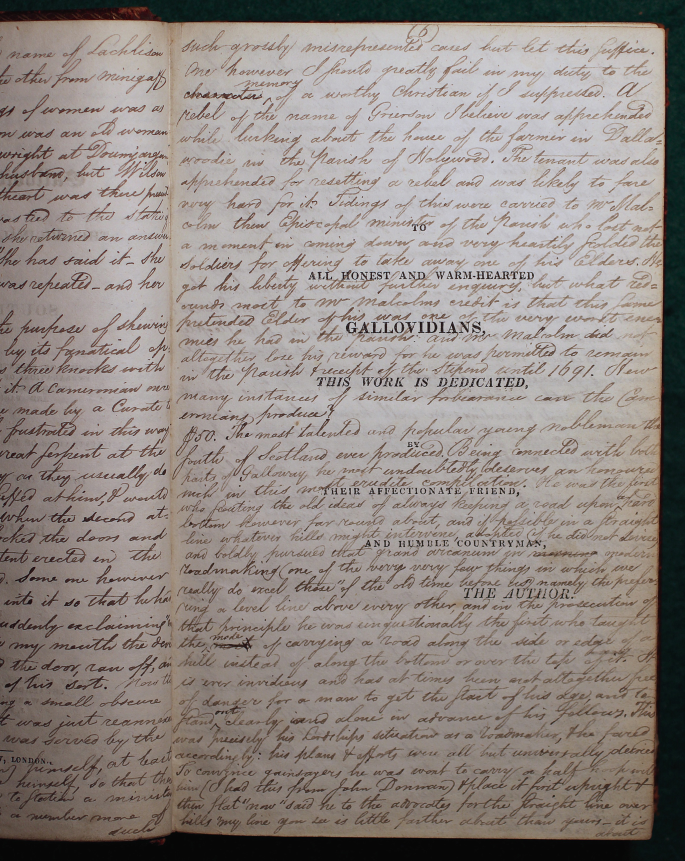 name of Lachlison
the other from Minigaff
of women was as
was an old woman
wright at Doum
husband, but Wilson
heart was there
to the
she returned an answer
she has said it - she
was repeated - and her
the purpose of shewing
by its fanatical
three knocks with
it. A Cameronian once
made by a Curate
frustrated in this way
great serpent at the
as they usually do
at him, & would
when the second at-
the doors and
tent erected in the
Some one however
into it so that he had
suddenly exclaiming
my mouth the
the door, ran off,
of his sort.
a small obscure
was just
was served by the
, LONDON.
himself, at least
himself, so that
a minister
a number more of
such
(6)
such grossly misrepresented cases but let this suffice.
One however I should greatly fail in my duty to the
memory
character of a worthy Christian if I suppressed. A
rebel of the name of Grierson I believe was apprehended
while lurking about the house of the farmer in Dalla-
woodie in the Parish of Holywood. The tenant was also
apprehended for resetting a rebel and was likely to fare
very hard for it. Tidings of this were carried to Mr Mal-
colm then Episcopal minister of the Parish who lost not
TO
a moment in coming down, and very heartily scolded the
soldiers for offering to take away one of his Elders. He
ALL HONEST AND WARM-HEARTED
got his liberty without further enquiry, but what red-
ounds most to Mr Malcolms credit is that this same
pretended Elder of his was one of the very worst ene-
GALLOVIDIANS,
mies he had in the parish. and Mr Malcolm did not
altogether lose his reward for he was permitted to remain
in the Parish & receipt of the stipend until 1691. How
THIS WORK IS DEDICATED,
many instances of similar forbearance can the Cam-
eronians produce?
P50. The most talented and popular young nobleman the
BY
South of Scotland ever produced. Being connected with both
parts of Galloway he most undoubtedly deserves an honoured
nich in this most erudite compilation. He was the first
THEIR AFFECTIONATE FRIEND,
who flouting the old ideas of always keeping a road upon a hard
bottom however far round about, and if possible in a straight
line whatever hills might intervene, adopted
AND HUMBLE COUNTRYMAN,
and boldly pursued that grand arcanum in modern
roadmaking (one of the very very few things in which we
really do excel those "of the old time before us) namely the prefer-
THE AUTHOR.
ring a level line above every other, and in the prosecution of
that principle he was unquestionably the first who taught
mode
the of carrying a road along the side or edge of a
hill instead of along the bottom or over the top of it. It
is ever invidious and has at times been not altogether free
of danger for a man to get the start of his age, and to
out
stand clearly and alone in advance of his fellows. This
was precisely his Lordships situation as a roadmaker, & he fared
accordingly: his plans & efforts were all but universally
to convince gainsayers he was wont to carry a half hoop with
him (I had this from John Donnan) & place it first upright &
then flat "now" said he to the advocates for the straight line over
hills "my line you see is little farther about than yours - it is
about